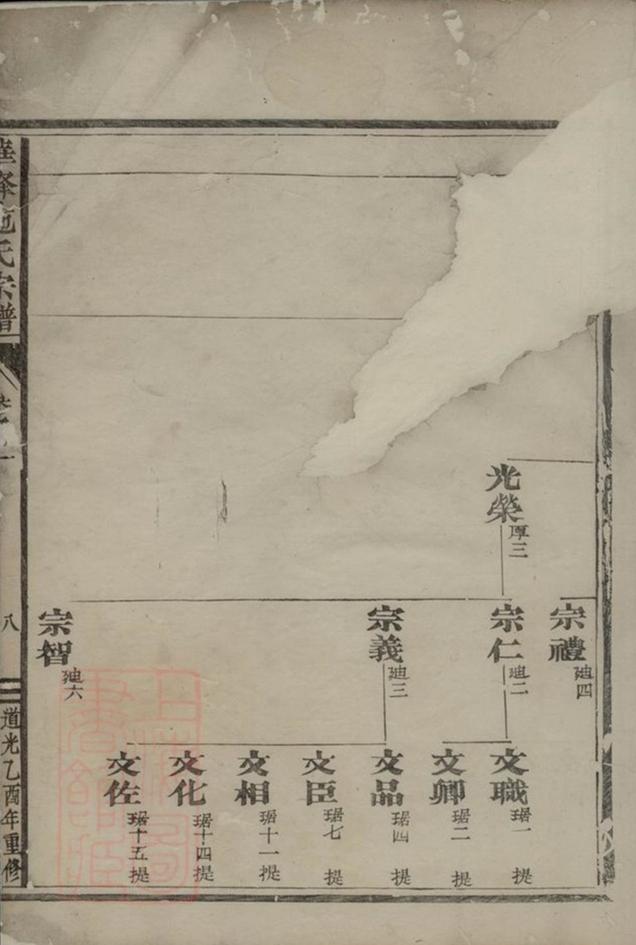 光榮厚三
宗禮廸四
宗仁廸二
宗義廸三
宗智廸六
文職琚一 提
文卿琚二 提
文品琚四 提
文臣琚七 提
文相琚十一 提
文化琚十四 提
文佐琚十五 提
峯施氏宗譜
卷之一
八
道光乙酉年重修